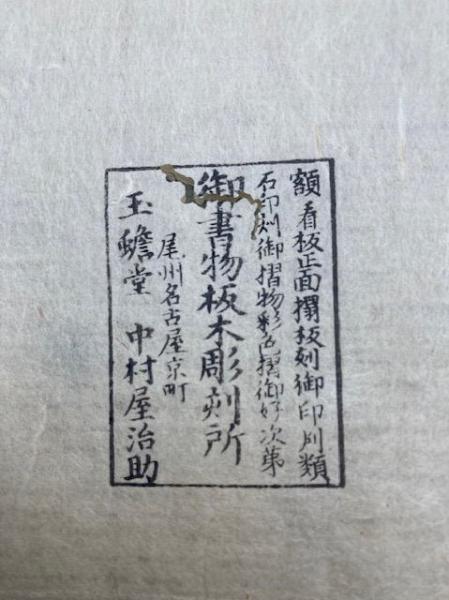 額看板正面搨板刻御印刻類
石印刻御摺物彩色摺御好次第
御書物板木彫刻所
尾州名古屋京町
玉蟾堂 中村屋治助